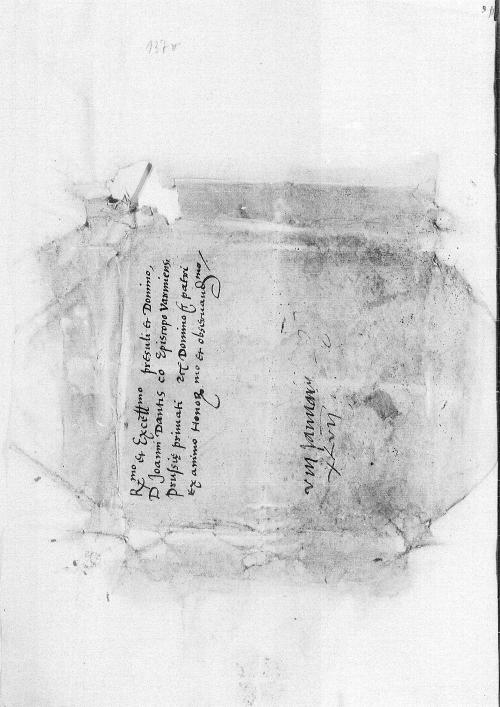 137v
R^mo et Excell^mo presuli et Domino,
D Joanni Dantis co Episcopo Varmiensi
Prussię primati Domino et patri
Ex animo Honor^mo et observand^mo
VIII Januarii